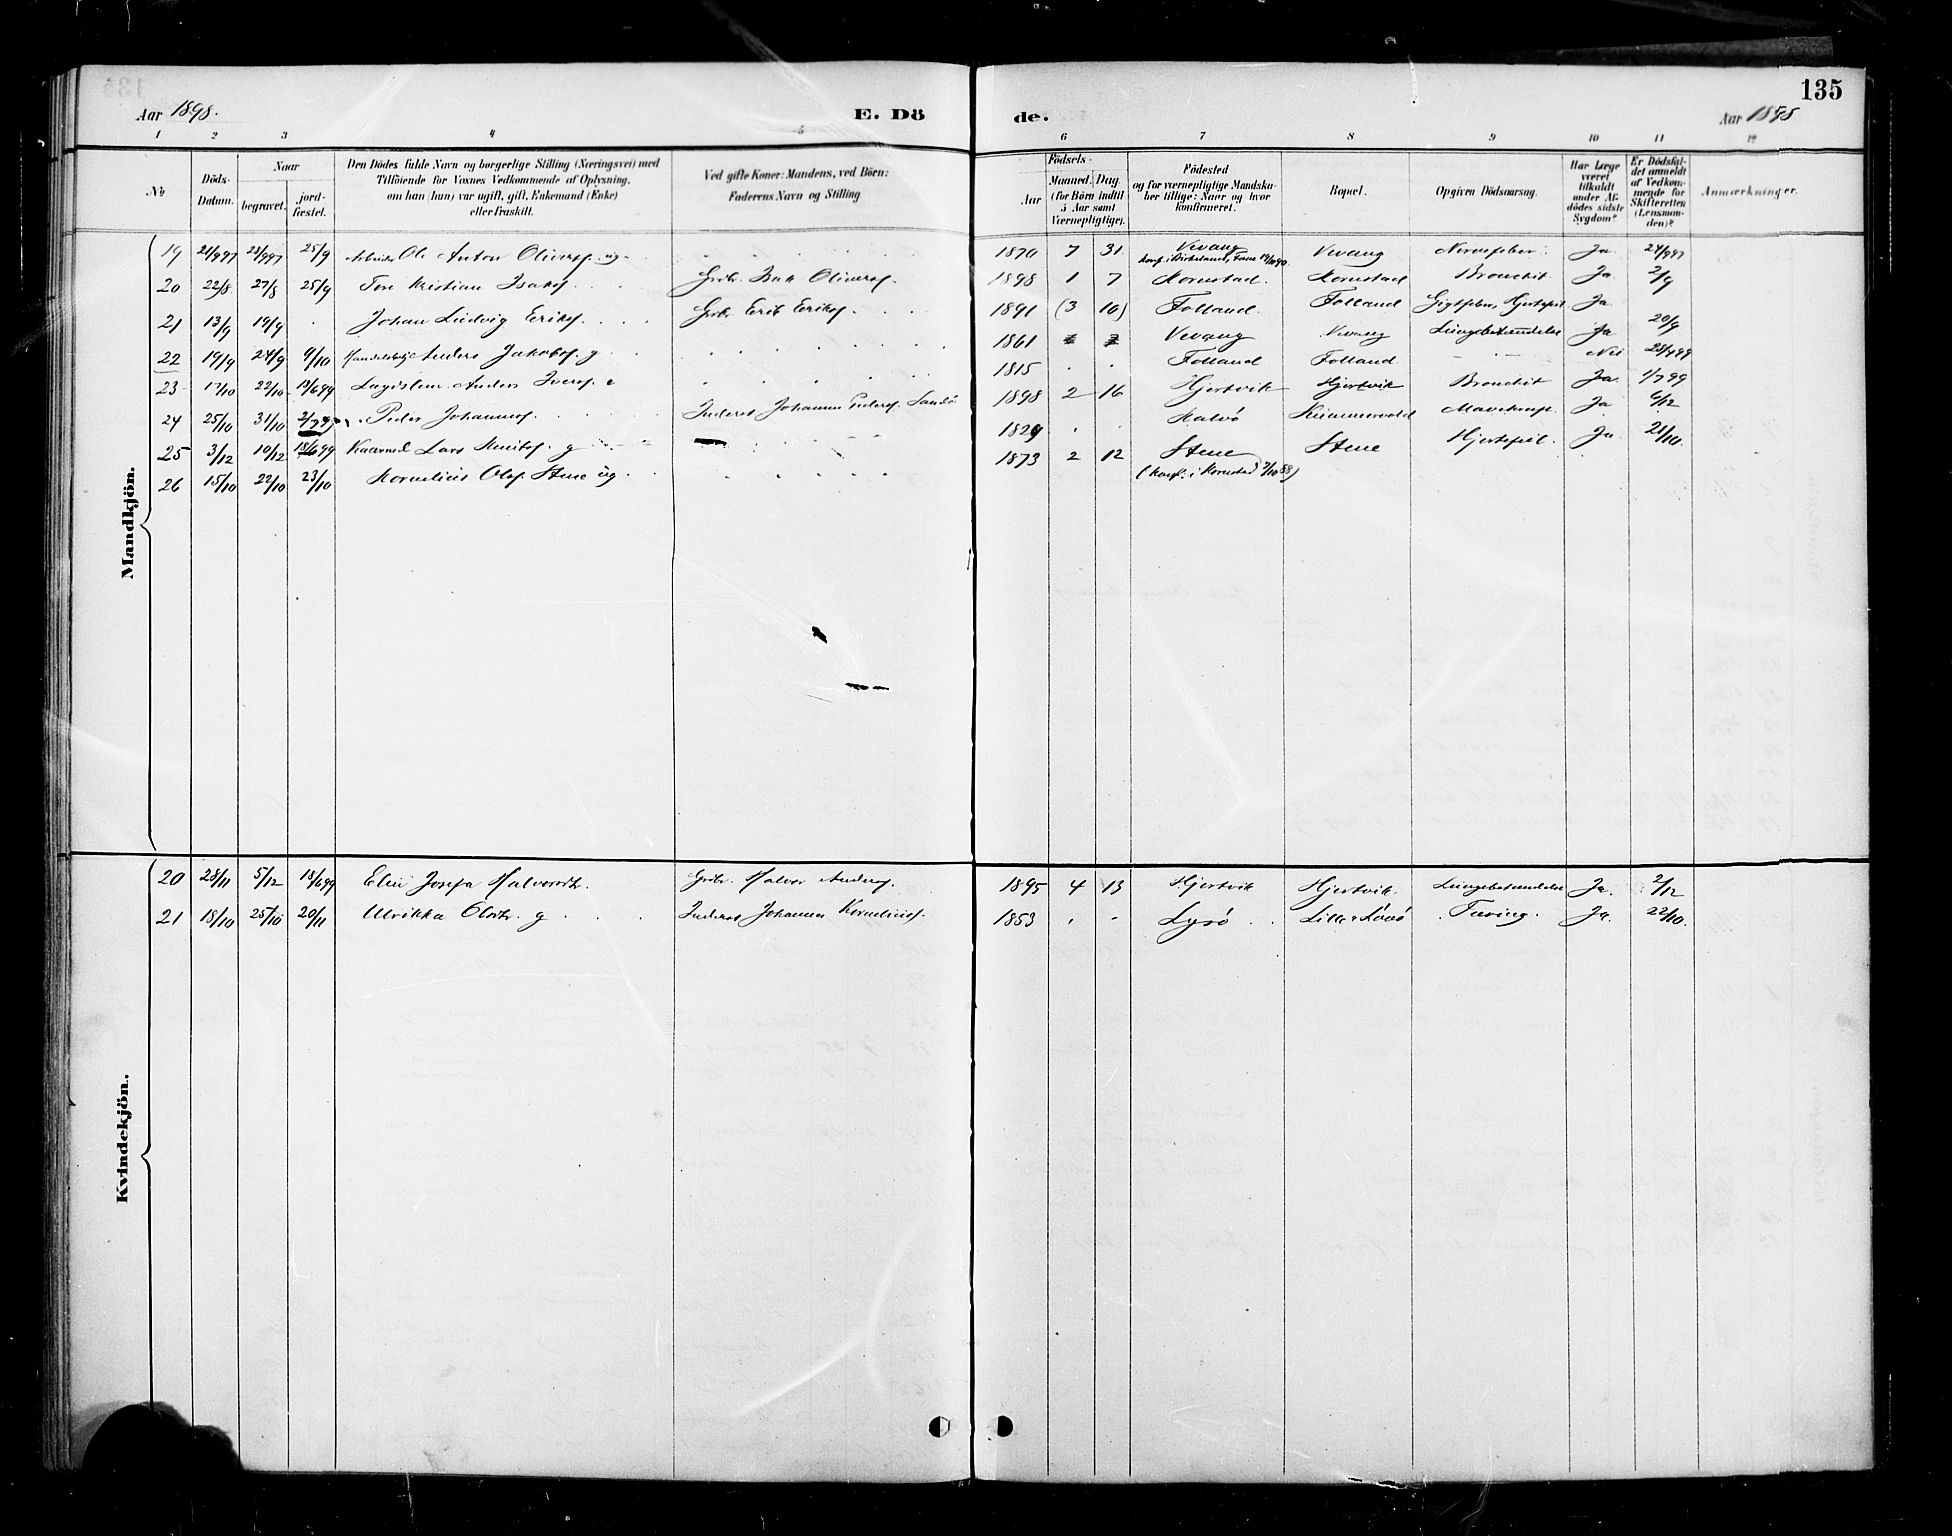 135
Aar 1898.
E. Döde.
Aar 1898
1 2 3 4 5 6 7 8 9 10 11 12
No
Döds-Datum.
Naar
begravet.
jord-fæstet.
Den Dödes fulde Navn og borgerlige Stilling (Næringsvei) med
Tilföiende for Voxnes Vedkommende af Oplysning,
om han (hun) var ugift, gift, Enkemand (Enke)
eller fraskilt.
Ved gifte Koner: Mandens, ved Börn:
Faderens Navn og Stilling.
Födsels-
Aar
Maaned. Dag
(for Börn indtil
5 Aar samt
Værnepligtige).
Födested
og for værnepligtige Mandska-
ber tillige: Naar og hvor
konfirmeret.
Bopæl.
Opgiven Dödsaarsag.
Har Læge
været
tilkaldt
under Af-
dödes sidste
Sygdom?
Er Dödsfal-
det anmeldt
af Vedkom-
mende for
Skifteretten
(Lensman-
den)?
Anmærkninger.
Mandkjön.
19 21/9 97 28/9 97 25/9 Arbeider Ole Anton Olivers. ug. 1870 7 31 Vevang Vevang Nervefeber Ja 24/9 97
20 22/8 27/8 25/9 Tore Kristian Isaks. Grbr. Isak Olivers. 1898 1 7 Kornstad. Kornstad Bronchit Ja 2/9
21 13/9 19/9 Johan Ludvig Eriks. Grbr. Erik Eriks. 1891 (3 10) Folland Folland Gigtfeber, Hjertefeil Ja 20/9
22 19/9 24/9 9/10 Anders Jakobs. g 1861 Vevang Vevang Lungebetændelse Ja
23 17/10 22/10 18/6 99 Lægdslem Anders Ivers. e 1815 Folland Folland Nei
24 25/10 31/10 2/7 99 Peder Johanness. Inderst Johannes Peders. Sandö 1898 2 16 Hjertvik Hjertvik Bronchit Ja 1/7 99
25 3/12 10/12 18/6 99 Kaarmd Lars Knuts. g 1829 Kalvö Mavekræft Ja 6/12
26 15/10 22/10 23/10 Kornelius Ols. Stene ug. 1873 2 12 Stene Stene Hjertefeil. Ja 21/10.
(konf. i Kornstad 7/10 88)
Kvindekjön.
20 28/11 5/12 18/6 99 Elen Josefa Halvorsdr. Grbr. Halvor Anders. 1895 4 13 Hjertvik Hjertvik. Lungebetændelse Ja. 2/12
21 18/10 25/10 20/11 Ulrikka Olsdr. g Inderst Johannes Kornelius. 1853 Lysö Tæring. Ja. 22/10.